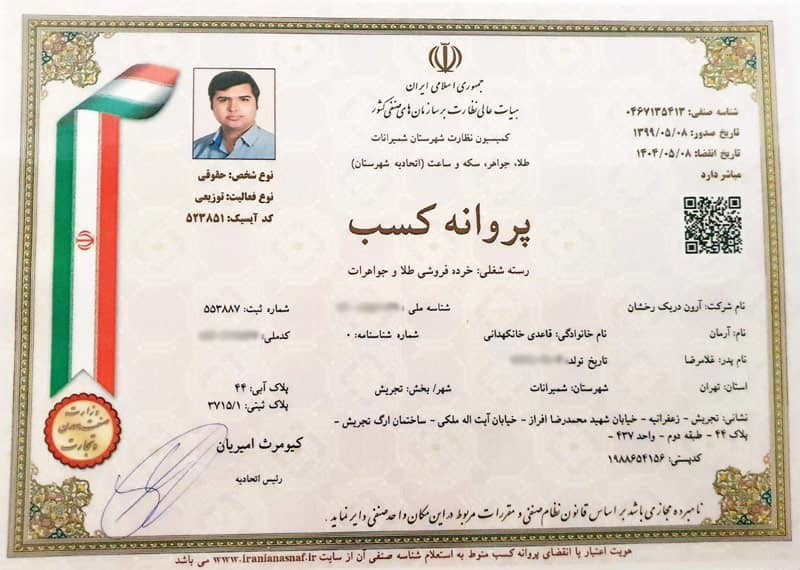 جمهوری اسلامی ایران
هیات عالی نظارت بر سازمان های صنفی کشور
کمیسیون نظارت شهرستان شمیرانات
طلا، جواهر، سکه و ساعت (اتحادیه شهرستان)
شناسه صنفی: ۰۴۶۷۱۳۵۴۱۳
تاریخ صدور: ۱۳۹۹/۰۵/۰۸
تاریخ انقضا: ۱۴۰۴/۰۵/۰۸
مباشر دارد
نوع شخص: حقوقی
نوع فعالیت: توزیعی
کد آیسیک: ۵۲۳۸۵۱
پروانه کسب
رسته شغلی: خرده فروشی طلا و جواهرات
نام شرکت: آرون دریک رخشان شناسه ملی : شماره ثبت: ۵۵۳۸۸۷
نام: آرمان نام خانوادگی: قاعدی خانکهدانی شماره شناسنامه: ۰ کدملی:
نام پدر: غلامرضا تاریخ تولد:
استان: تهران شهرستان: شمیرانات شهر/ بخش: تجریش پلاک آبی: ۴۴
پلاک ثبتی: ۳۷۱۵/۱
نشانی: تجریش - زعفرانیه - خیابان شهید محمدرضا افراز - خیابان آیت اله ملکی - ساختمان ارگ تجریش -
پلاک ۴۴ - طبقه دوم - واحد ۴۳۷ -
کدپستی: ۱۹۸۸۶۵۴۱۵۶
کیومرث امیریان
رئیس اتحادیه
وزارت
صنعت، معدن
و تجارت
نامبرده مجاز می باشد بر اساس قانون نظام صنفی و مقررات مربوط در این مکان واحد صنفی دایر نماید .
هویت اعتبار یا انقضای پروانه کسب منوط به استعلام شناسه صنفی آن از سایت www.iranianasnaf.ir می باشد